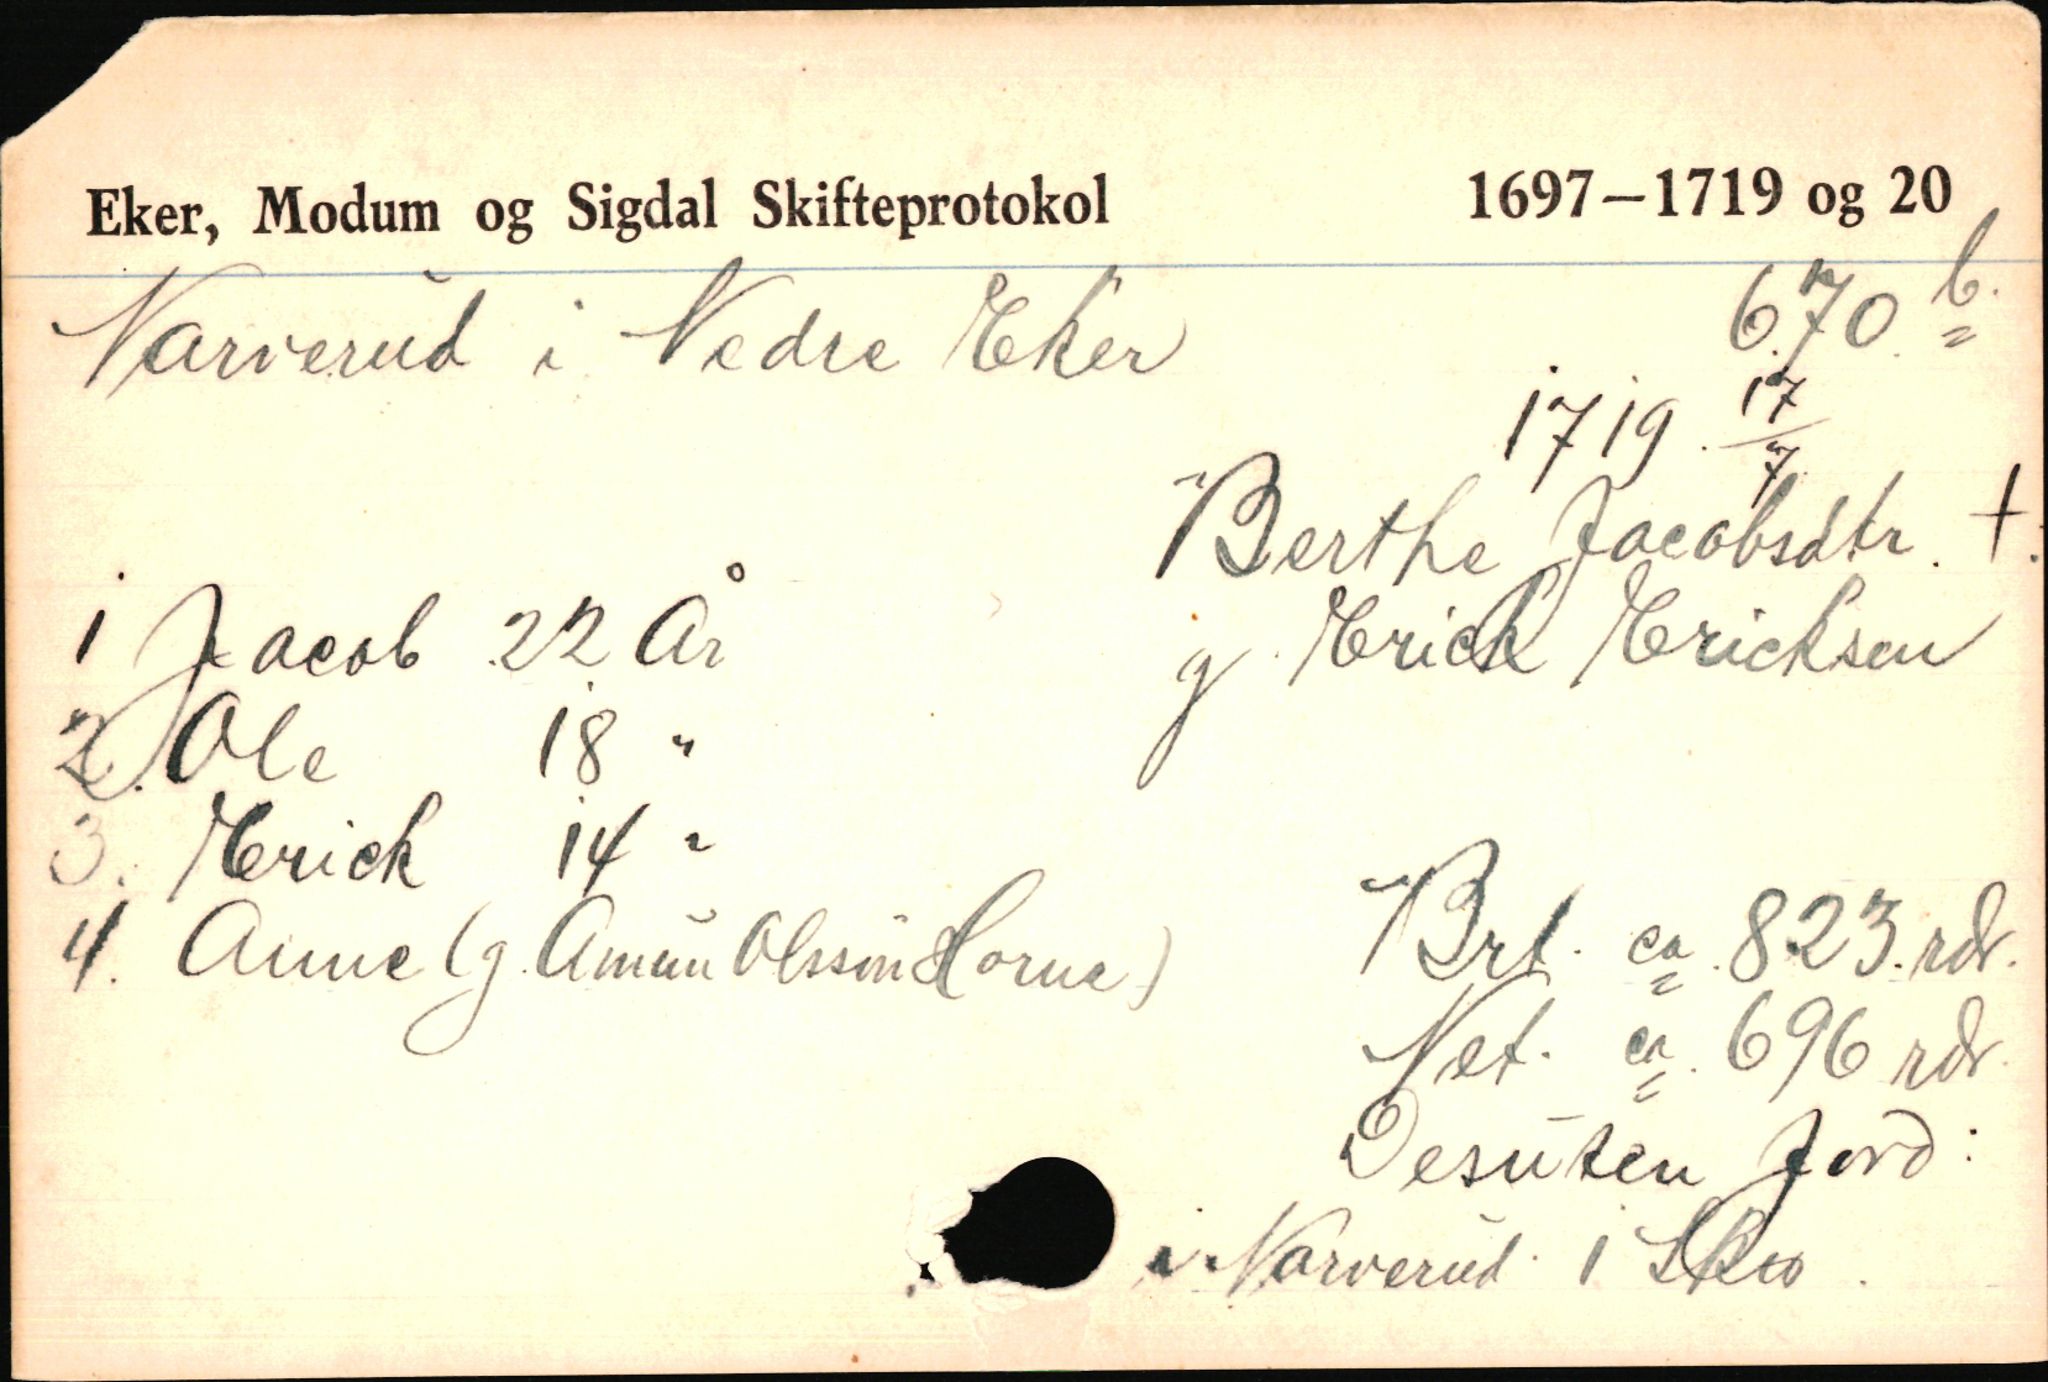 Eker, Modum og Sigdal Skifteprotokol 1697—1719 og 20
Narverud i Nedre Eker
670 b.
1719. 17/7
Berthe Jacobsdtr. †.
g. Erick Ericksen
1 Jacob 22 År
2. Ole 18 "
3. Erick 14 "
4. Anne (g. Amun Olssön Horne)
Brt. ca. 823. rdr.
Net. ca. 696 rdr.
Desuten Jord:
i Narverud 1 Skⱥ.